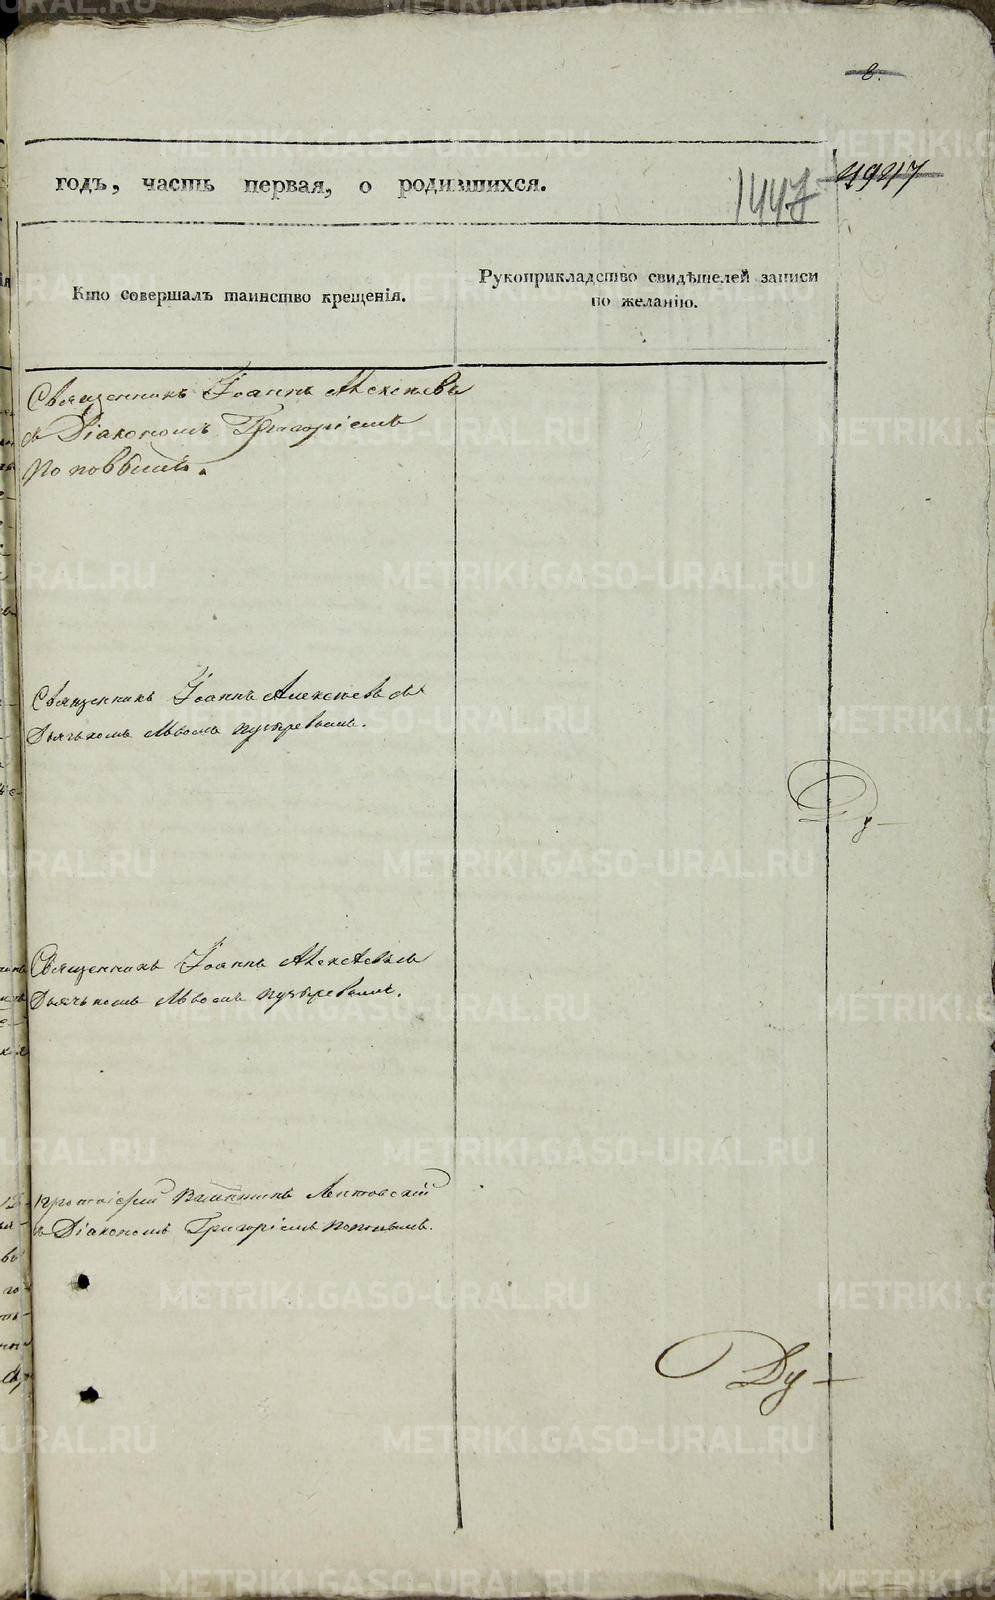 8.
годъ, часть первая, о родившихся.
1447
4947
Кто совершалъ таинство крещенія.
Рукоприкладство свидѣтелей записи
по желанію.
Священникъ Іоаннъ Алексѣевъ
съ Діакономъ Григоріемъ
Поповымъ.
Священникъ Іоаннъ Алексѣевъ съ
Дьячькомъ Львомъ Пузыревымъ.
Священникъ Іоаннъ Алексѣевъ съ
Дьячькомъ Львомъ Пузыревымъ.
Протоіерей Валентинъ
съ Діакономъ Григоріемъ Поповымъ.
Ду-
Ду-
METRIKI.GASO-URAL.RU